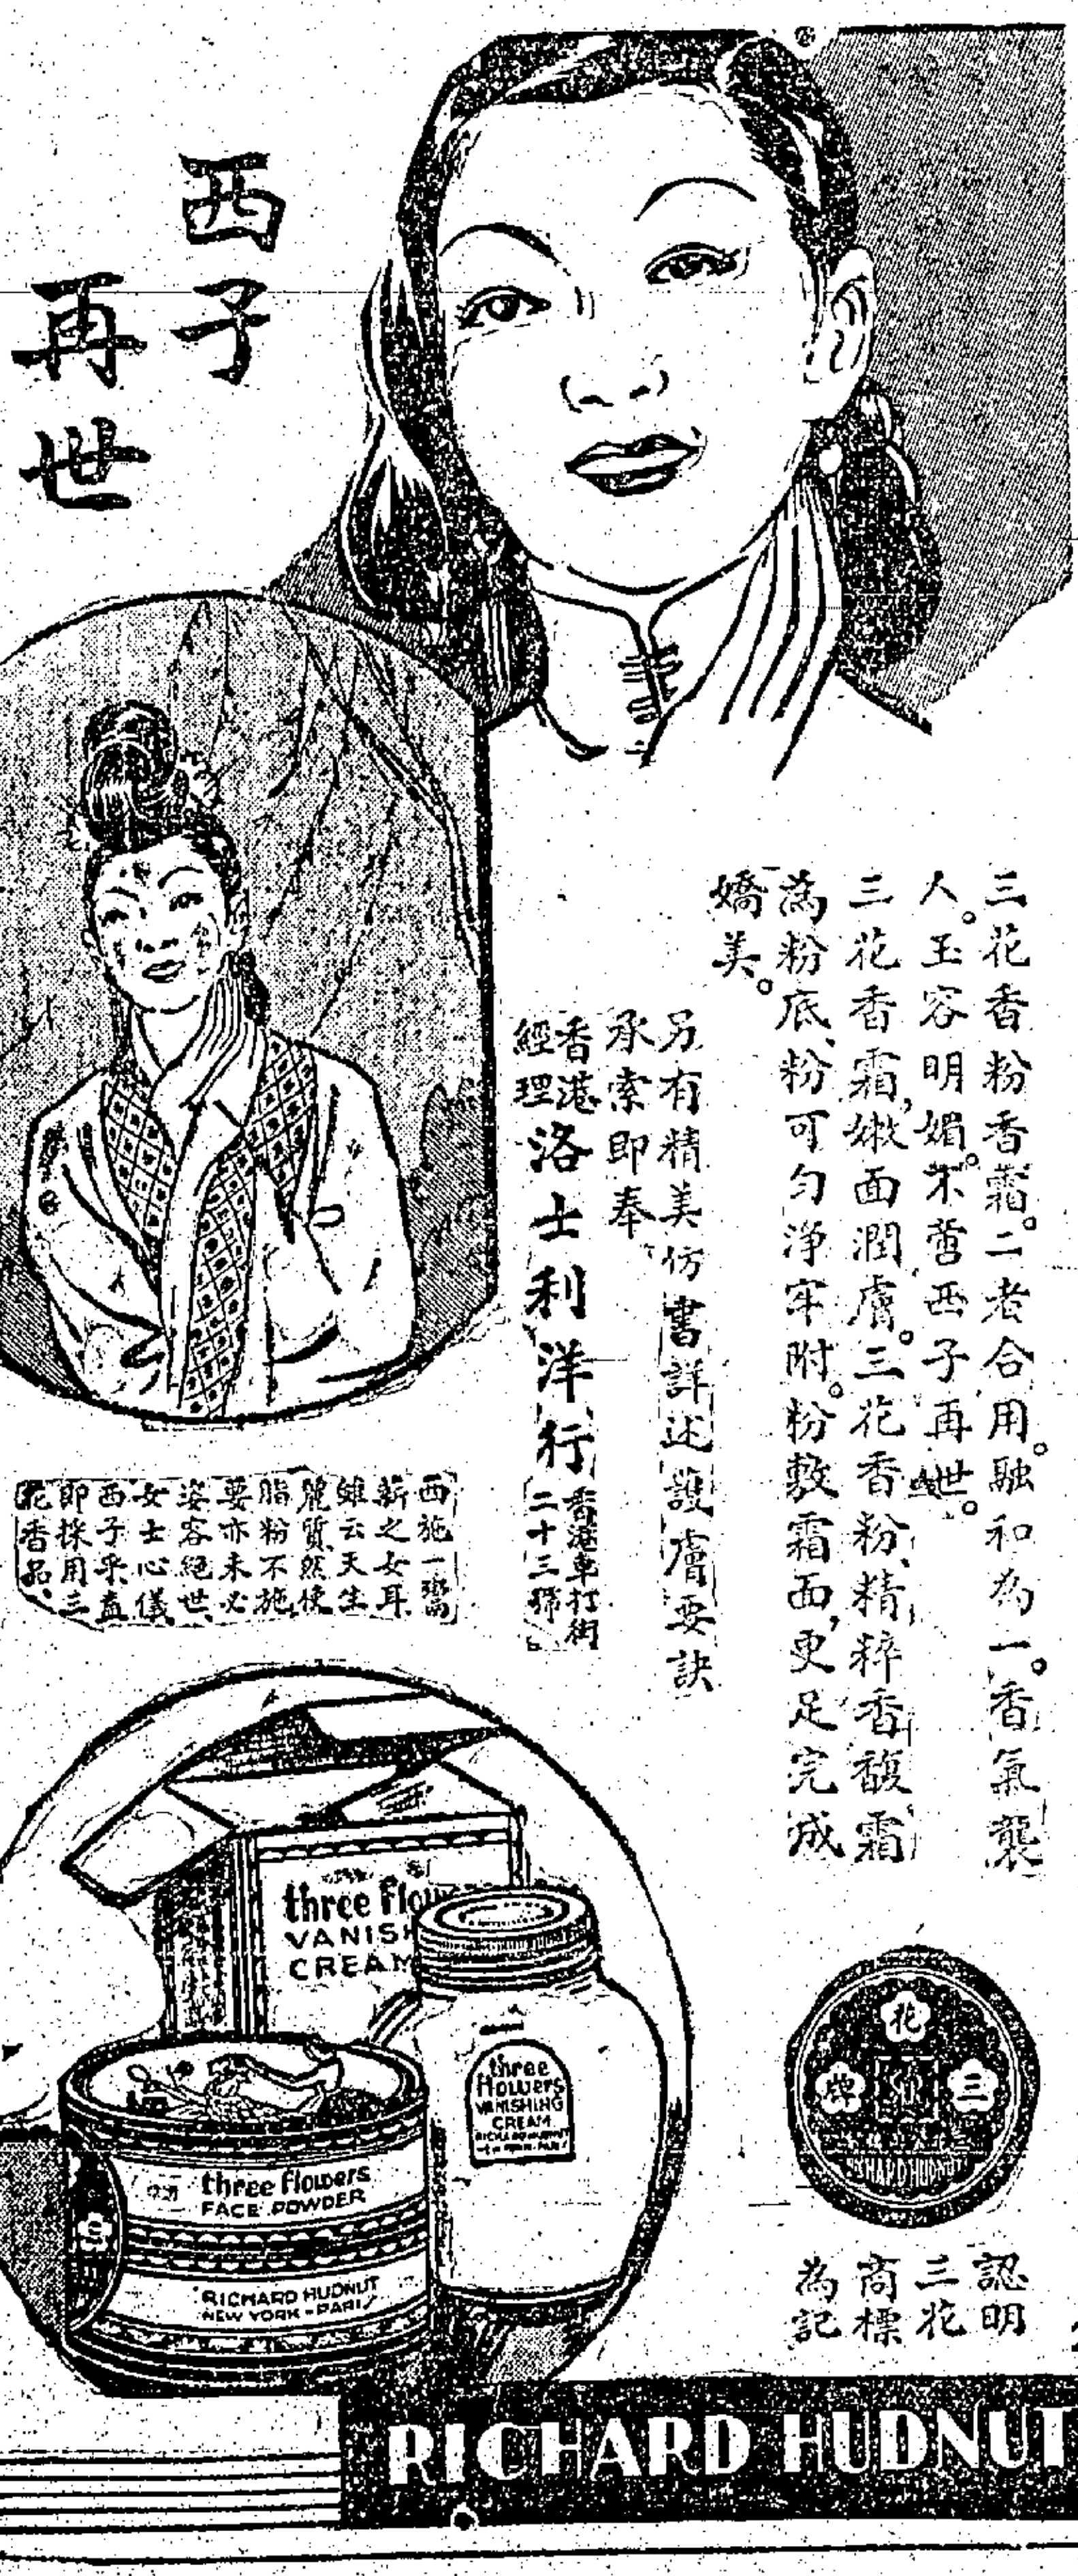 西子
再世
三花香粉香霜。二者合用。融和為一。香氣襲
人。玉容明媚。不啻西子再世。
三花香霜,嫩面潤膚。三花香粉、精粹香馥霜
為粉底、粉可勻淨牢附。粉敷霜面,更足完成
嬌美。
另有精美仿書詳述護膚要訣
承索即奉
香港
經理
洛士利洋行
香港車打街
二十三號
西施一鬻
薪之女耳
雖云天生
麗質然使
脂粉不施
要亦未必
姿容絕世
女士心儀
西子乎盍
即採用三
花香品
three flow
VANISH
CREAM
three
flowers
VANISHING
CREAM
RICHARD HUDNUT
three flowers
FACE POWDER
RICHARD HUDNUT
NEW YORK - PARIS
三
花
牌
RICHARD HUDNUT
認明
三花
商標
為記
RICHARD HUDNUT